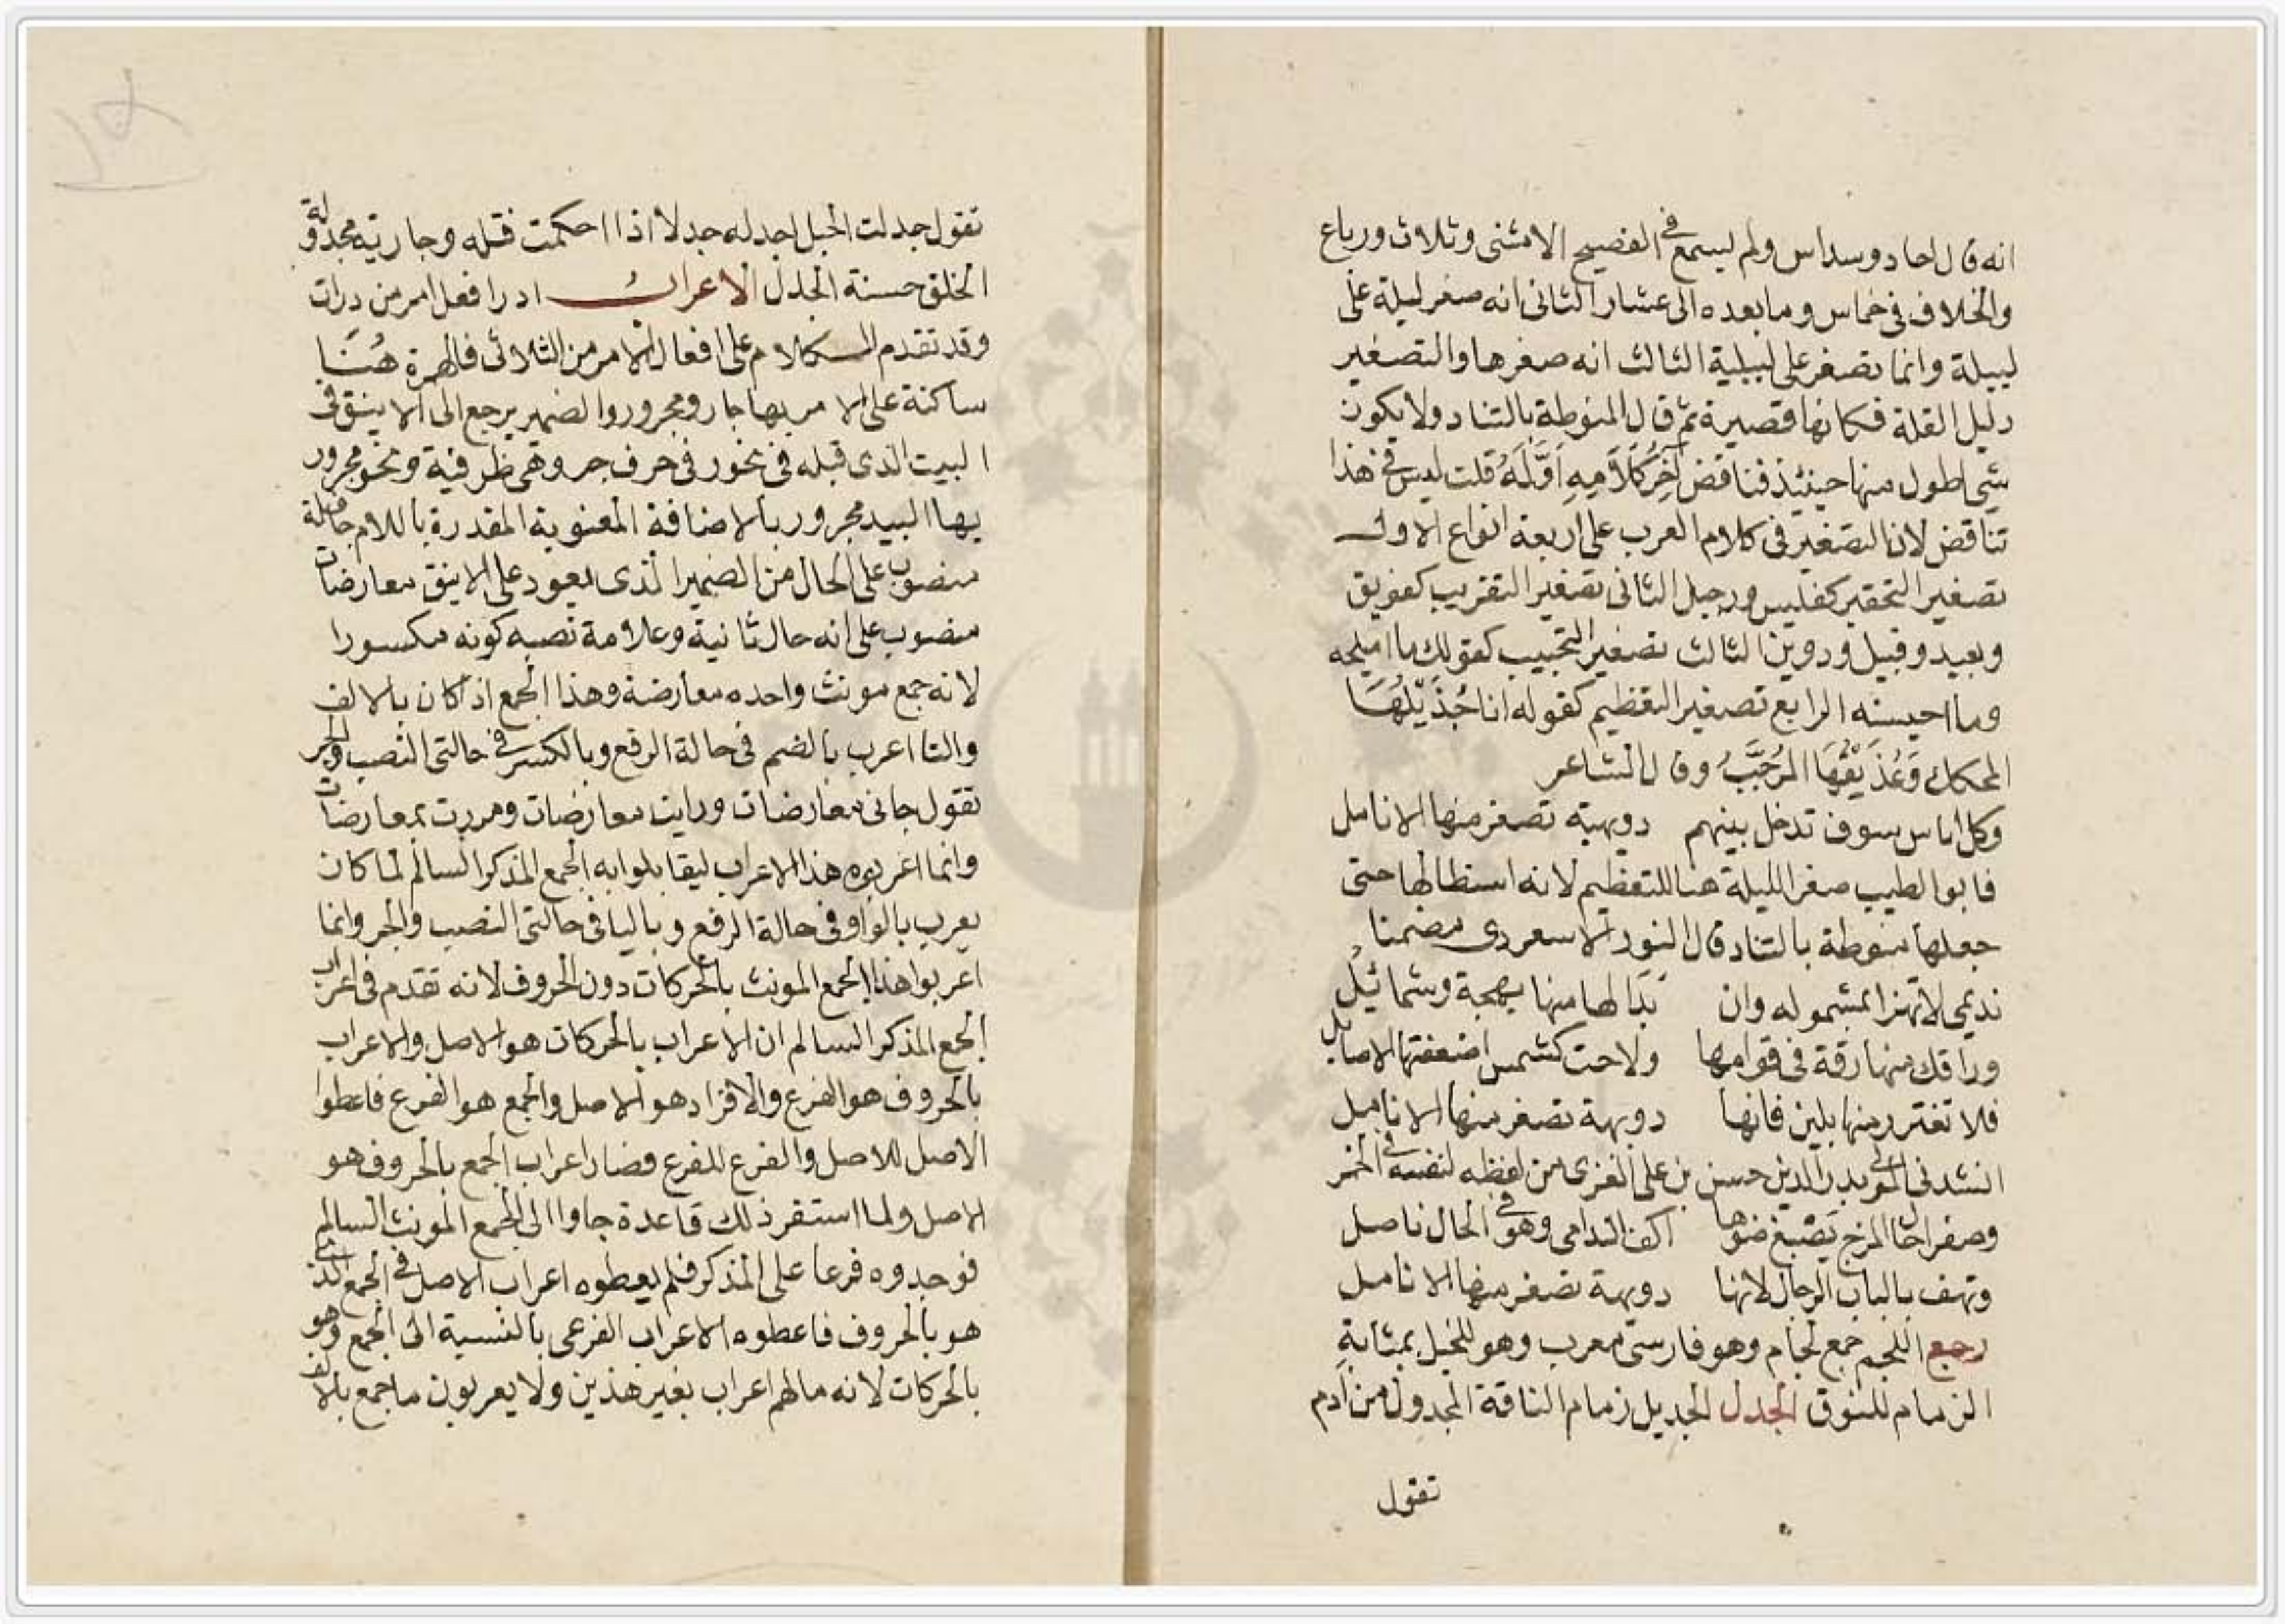 انه قال احاد وسداس ولم يسمع في الفصيح الا مثنى وثلاث ورباع
والخلاف في خماس وما بعده الى عشار الثانى انه صغر ليلة على
لييلة وانما تصغر على لييلية الثالث انه صغرها والتصغير
دليل القلة فكانها قصيرة ثم قال المنوطة بالتناد ولا يكون
شي اطول منها حينئذ فناقض آخِرُ كَلَامِهِ اَوَّلَهُ قلت ليس في هذا
تناقض لان التصغير في كلام العرب على اربعة انواع الاول
تصغير التحقير كفليس ورجيل الثانى تصغير التقريب كفويق
وبعيد وقبيل ودوين الثالث تصغير التحبيب كقولك ما اميلحه
وما احيسنه الرابع تصغير التعظيم كقوله انا جُذَيْلُهَا
المحكك وَعُذَيْقُهَا المُرَجَّبُ وقال الشاعر
وكل اناس سوف تدخل بينهم دويهية تصفر منها الانامل
فابو الطيب صغر الليلة هنا للتعظيم لانه استطالها حتى
جعلها منوطة بالتناد قال النور الاسعردى مضمنا
نديمى لا تهزا بمشموله وان بَدَا لها منها بهجة وشمائيلُ
وراقك منها رقة في قوامها ولاحت كشمس اضعفتها الاصايل
فلا تغترر منها بلين فانها دويهة تصفر منها الانامل
انشدنى المولى بدر الدين حسن بن على الغزى من لفظه لنفسه في الخمر
وصفرا حال المزج يَصْبغ ضوها اكف الندامى وهو في الحال ناصل
وتهف بالباب الرجال لانها دويهة تصفر منها الانامل
رجع اللجم جمع لجام وهو فارسىّ معرب وهو للخيل بمثابةِ
الزمام للنوق الجدل الجديل زمام الناقة المجدول من آدم
تقول
تقول جدلت الحبل اجدله جدلا اذا احكمت فتله وجارية مجدولة
الخلق حسنة الجدل الاعراب ادرا فعل امر من درات
وقد تقدم الكلام على افعال الامر من الثلاثى فالهمزة هُنَا
ساكنة على الامر بها جار ومجرور والضمير يرجع الى الاينق في
البيت الذى قبله في نحور في حرف جر وهى ظرفية ونحو مجرور
بها البيد مجرور بالاضافة المعنوية المقدرة باللام جافلة
منصوب على الحال من الضمير الذى يعود على الاينق معارضات
منصوب على انه حال ثانية وعلامة نصبه كونه مكسورا
لانه جمع مونث واحده معارضة وهذا الجمع اذا كان بالالف
والتا اعرب بالضم في حالة الرفع وبالكسر في حالتى النصب والجر
تقول جانى معارضات ورايت معارضات ومررت بمعارضات
وانما اعربوه هذا الاعراب ليقابلوا به الجمع المذكر السالم لما كان
يعرب بالواو في حالة الرفع وباليا في حالتى النصب والجر وانما
اعربوا هذا الجمع المونث بالحركات دون الحروف لانه تقدم في اعراب
الجمع المذكر السالم ان الاعراب بالحركات هو الاصل والاعراب
بالحروف هو الفرع والافراد هو الاصل والجمع هو الفرع فاعطوا
الاصل للاصل والفرع للفرع فصار اعراب الجمع بالحروف هو
الاصل ولما استقر ذلك قاعدة جاوا الى الجمع المونث السالم
فوجدوه فرعا على المذكر فلم يعطوه اعراب الاصل في الجمع الذى
هو بالحروف فاعطوه الاعراب الفرعى بالنسبة الى الجمع وهو
بالحركات لانه ما لهم اعراب بغير هذين ولا يعربون ما جمع بالالف